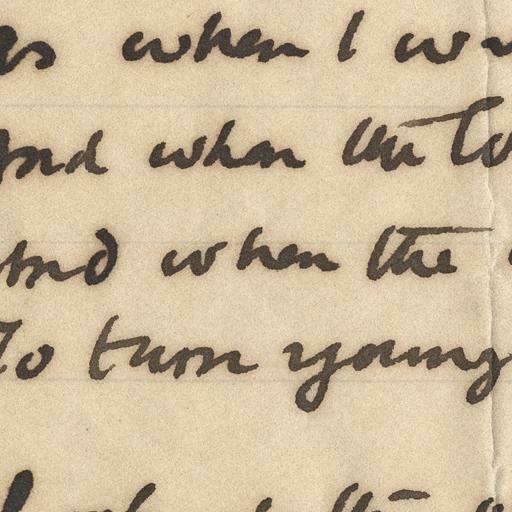 as when I w
And when the to
And when the
To turn young